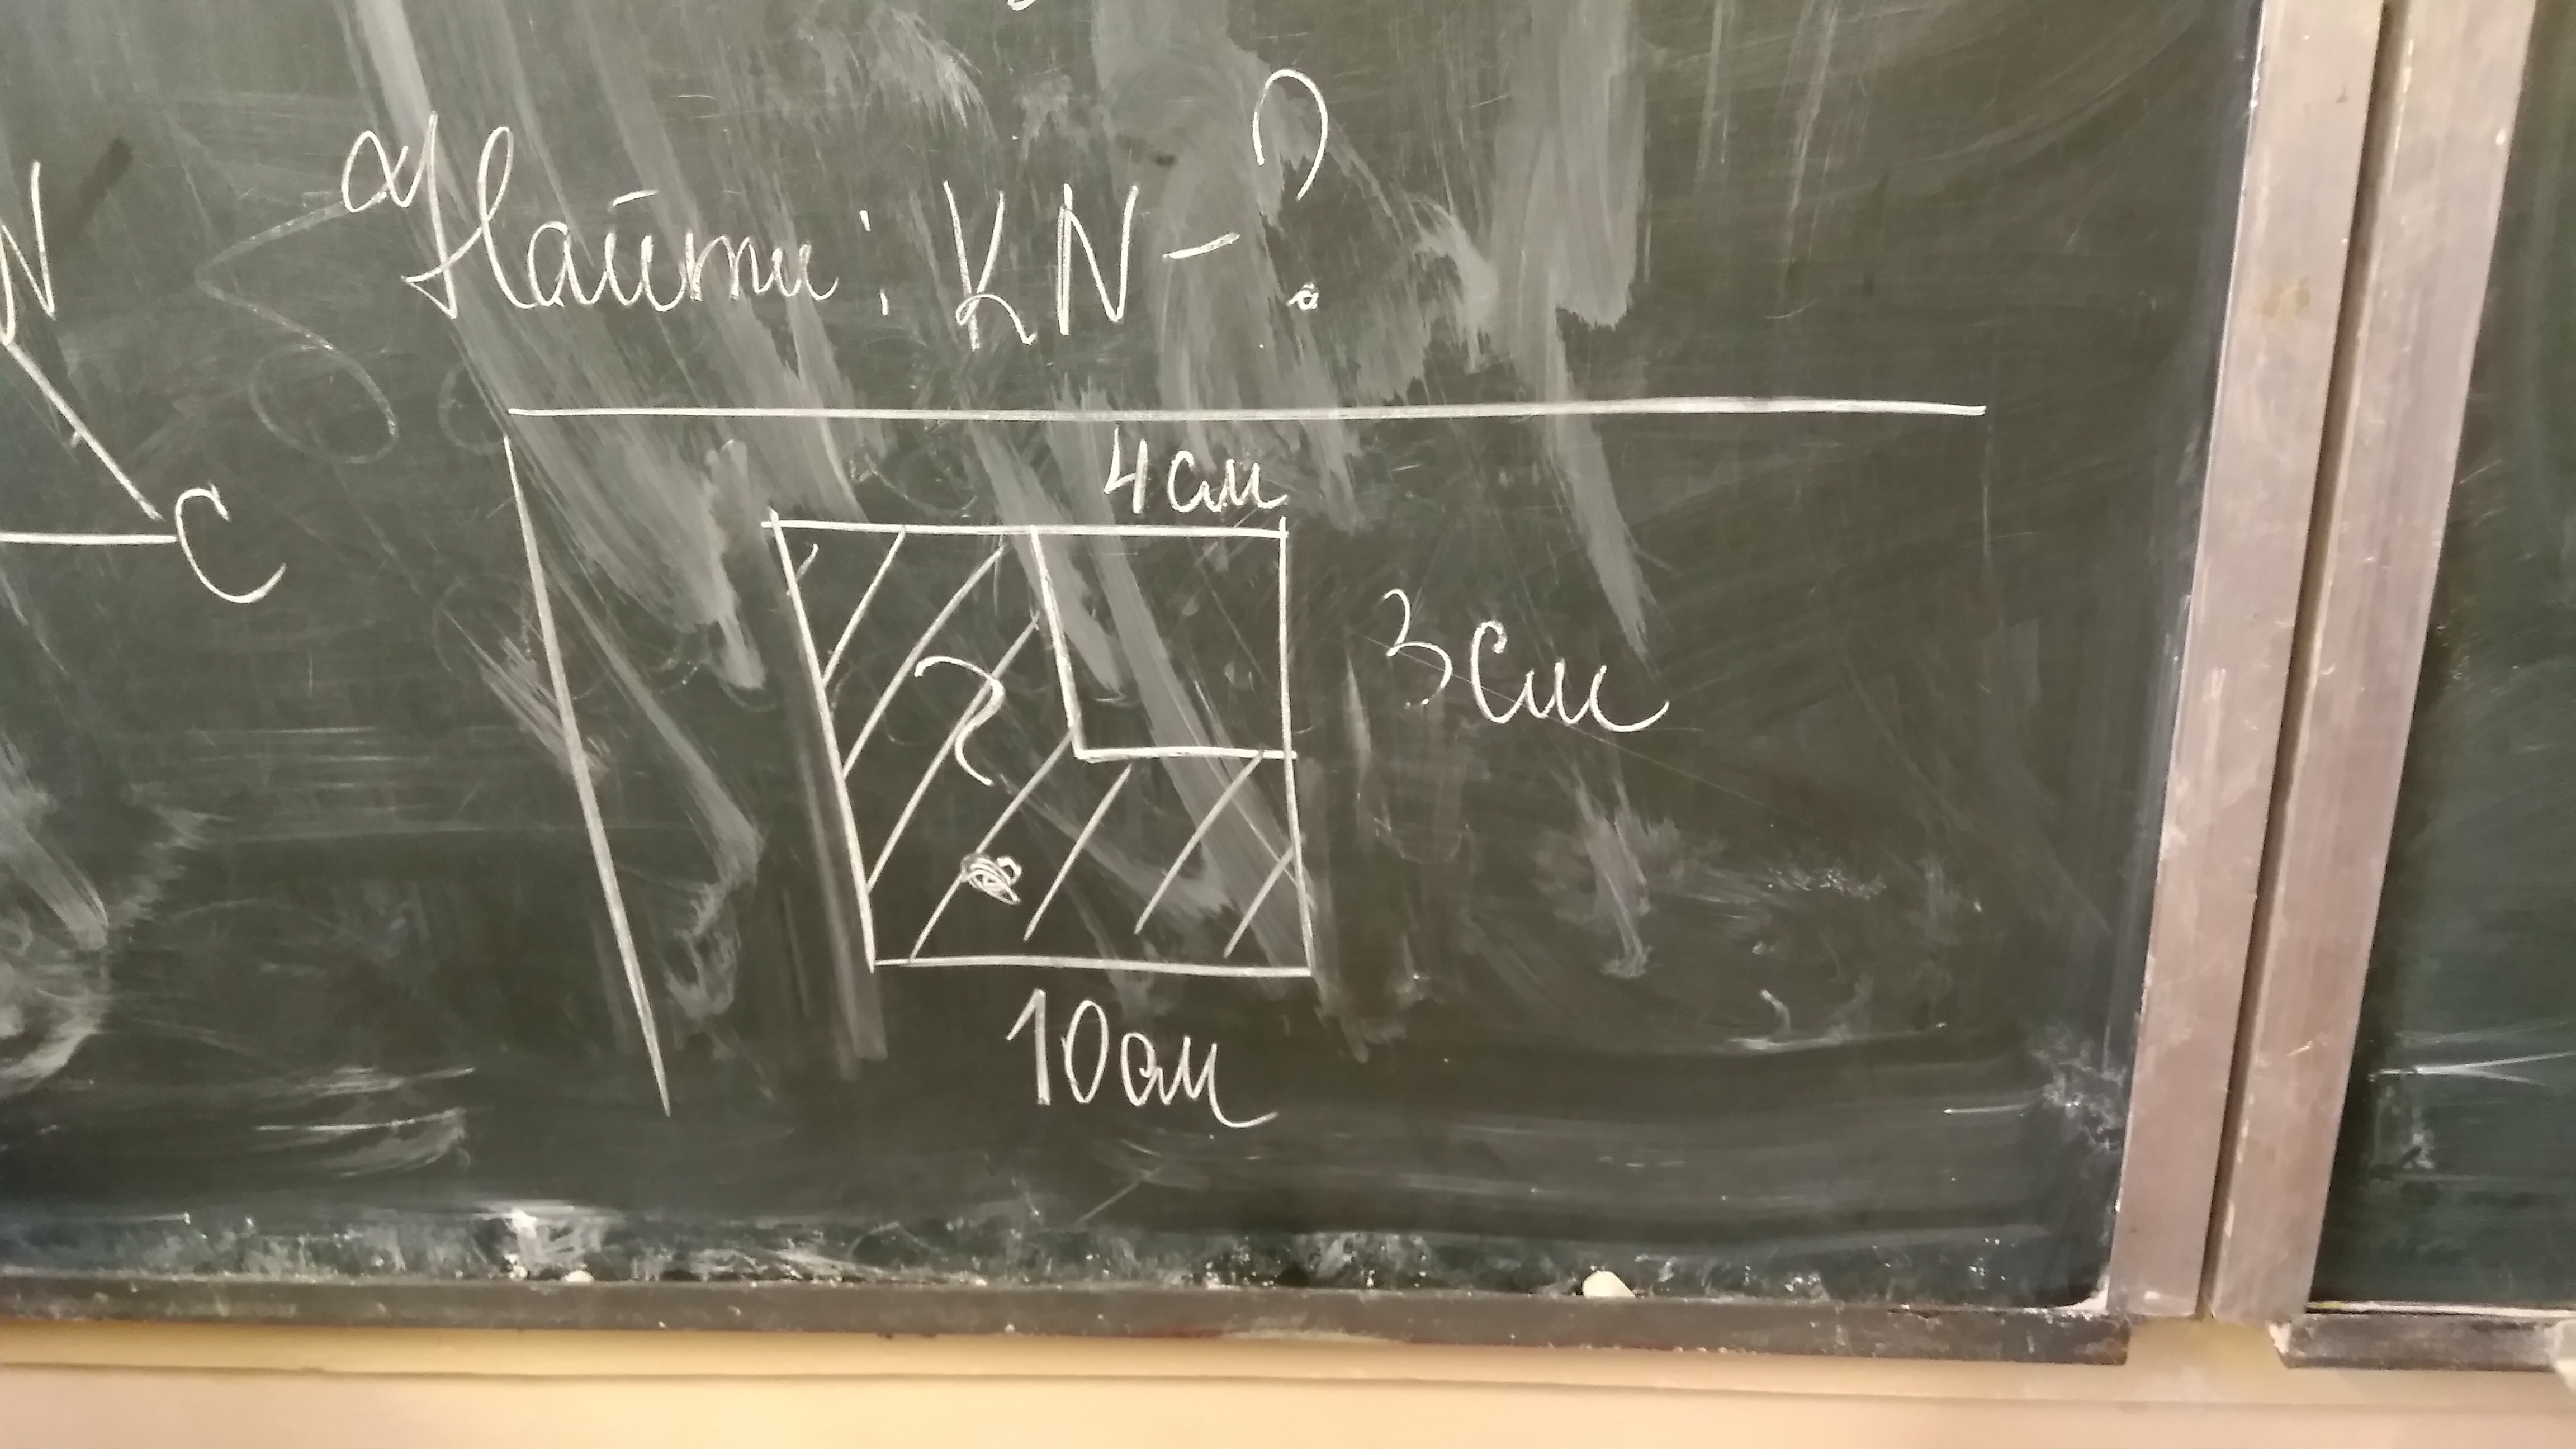 N
Найти: KN - ?
C
4 см
3 см
?
10 см